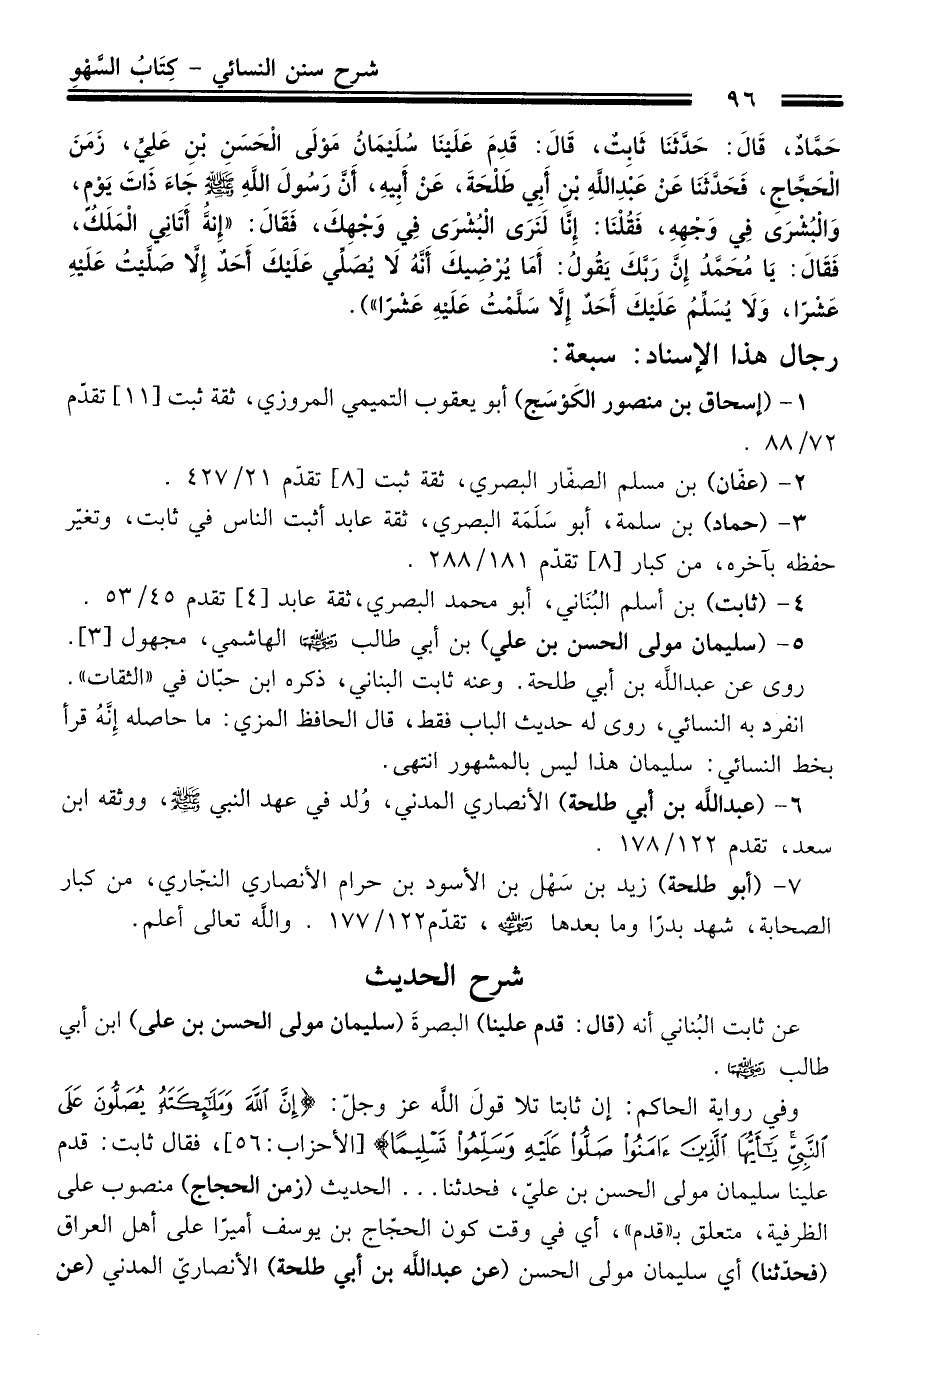 شرح سنن النسائي - كِتَابُ السَّهْوِ
٩٦
حَمَّادٌ، قَالَ: حَدَّثَنَا ثَابِتٌ، قَالَ: قَدِمَ عَلَيْنَا سُلَيْمَانُ مَوْلَى الْحَسَنِ بْنِ عَلِيٍّ، زَمَنَ
الْحَجَّاجِ، فَحَدَّثَنَا عَنْ عَبْدِاللَّهِ بْنِ أَبِي طَلْحَةَ، عَنْ أَبِيهِ، أَنَّ رَسُولَ اللَّهِ ﷺ جَاءَ ذَاتَ يَوْمٍ،
وَالْبُشْرَى فِي وَجْهِهِ، فَقُلْنَا: إِنَّا لَنَرَى الْبُشْرَى فِي وَجْهِكَ، فَقَالَ: «إِنهُ أَتَانِي الْمَلَكُ،
فَقَالَ: يَا مُحَمَّدُ إِنَّ رَبَّكَ يَقُولُ: أَمَا يُرْضِيكَ أَنَّهُ لَا يُصَلِّي عَلَيْكَ أَحَدٌ إِلَّا صَلَّيْتُ عَلَيْهِ
عَشْرًا، وَلَا يُسَلِّمُ عَلَيْكَ أَحَدٌ إِلَّا سَلَّمْتُ عَلَيْهِ عَشْرًا»).
رجال هذا الإسناد: سبعة:
١- (إسحاق بن منصور الكَوْسَج) أبو يعقوب التميمي المروزي، ثقة ثبت [١١] تقدّم
٨٨/٧٢ .
٢- (عفّان) بن مسلم الصفّار البصري، ثقة ثبت [٨] تقدّم ٤٢٧/٢١ .
٣- (حماد) بن سلمة، أبو سَلَمَة البصري، ثقة عابد أثبت الناس في ثابت، وتغيّر
حفظه بآخره، من كبار [٨] تقدّم ٢٨٨/١٨١ .
٤- (ثابت) بن أسلم البُنَاني، أبو محمد البصري،ثقة عابد [٤] تقدم ٥٣/٤٥ .
٥- (سليمان مولى الحسن بن علي) بن أبي طالب رضي الله عنهما الهاشمي، مجهول [٣].
روى عن عبداللَّه بن أبي طلحة. وعنه ثابت البناني، ذكره ابن حبّان في «الثقات».
انفرد به النسائي، روى له حديث الباب فقط، قال الحافظ المزي: ما حاصله إِنَّهُ قرأ
بخط النسائي: سليمان هذا ليس بالمشهور انتهى.
٦- (عبداللَّه بن أبي طلحة) الأنصاري المدني، وُلد في عهد النبي ﷺ، ووثقه ابن
سعد، تقدم ١٧٨/١٢٢ .
٧- (أبو طلحة) زيد بن سَهْل بن الأسود بن حرام الأنصاري النجّاري، من كبار
الصحابة، شهد بدرًا وما بعدها رضي الله عنه ، تقدّم١٧٧/١٢٢ . واللَّه تعالى أعلم.
شرح الحديث
عن ثابت البُناني أنه (قال: قدم علينا) البصرةَ (سليمان مولى الحسن بن على) ابن أبي
طالب رضي الله عنهما .
وفي رواية الحاكم: إن ثابتا تلا قولَ اللَّه عز وجلّ: ﴿إِنَّ ٱللَّهَ وَمَلَٰٓئِكَتَهُۥ يُصَلُّونَ عَلَى
ٱلنَّبِيِّۚ يَٰٓأَيُّهَا ٱلَّذِينَ ءَامَنُوا۟ صَلُّوا۟ عَلَيْهِ وَسَلِّمُوا۟ تَسْلِيمًا﴾ [الأحزاب:٥٦]، فقال ثابت: قدم
علينا سليمان مولى الحسن بن عليّ، فحدثنا... الحديث (زمن الحجاج) منصوب على
الظرفية، متعلق بـ«قدم»، أي في وقت كون الحجّاج بن يوسف أميرًا على أهل العراق
(فحدّثنا) أي سليمان مولى الحسن (عن عبداللَّه بن أبي طلحة) الأنصاريّ المدني (عن